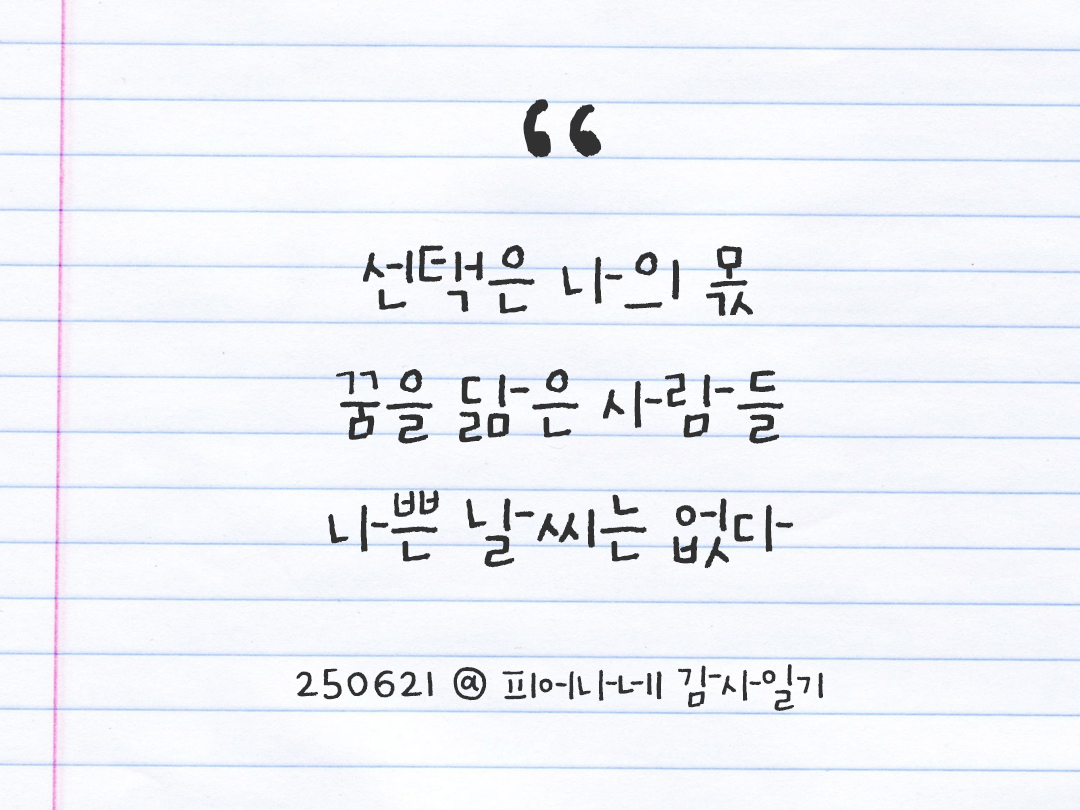 “
선택은 나의 몫
꿈을 닮은 사람들
나쁜 날씨는 없다
250621 @ 피어나네 감사일기